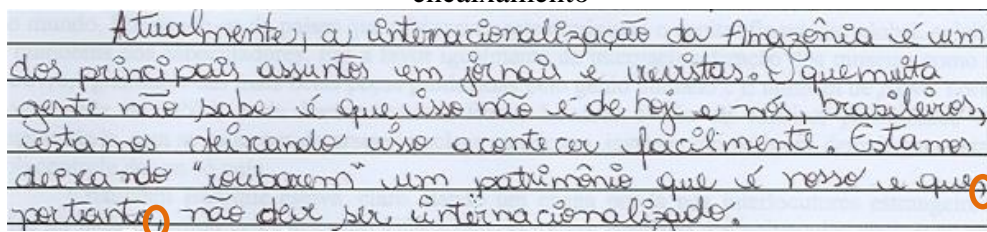 encaixamento
Atualmente, a, internacionalização da Amazônia é um
dos principais assuntos em jornais e revistas. O que muita
gente não sabe é que isso não é de hoje e nós, brasileiros,
estamos deixando isso acontecer facilmente. Estamos
deixando "roubarem" um patrimônio que é nosso e que,
portanto, não deve ser internacionalizado.